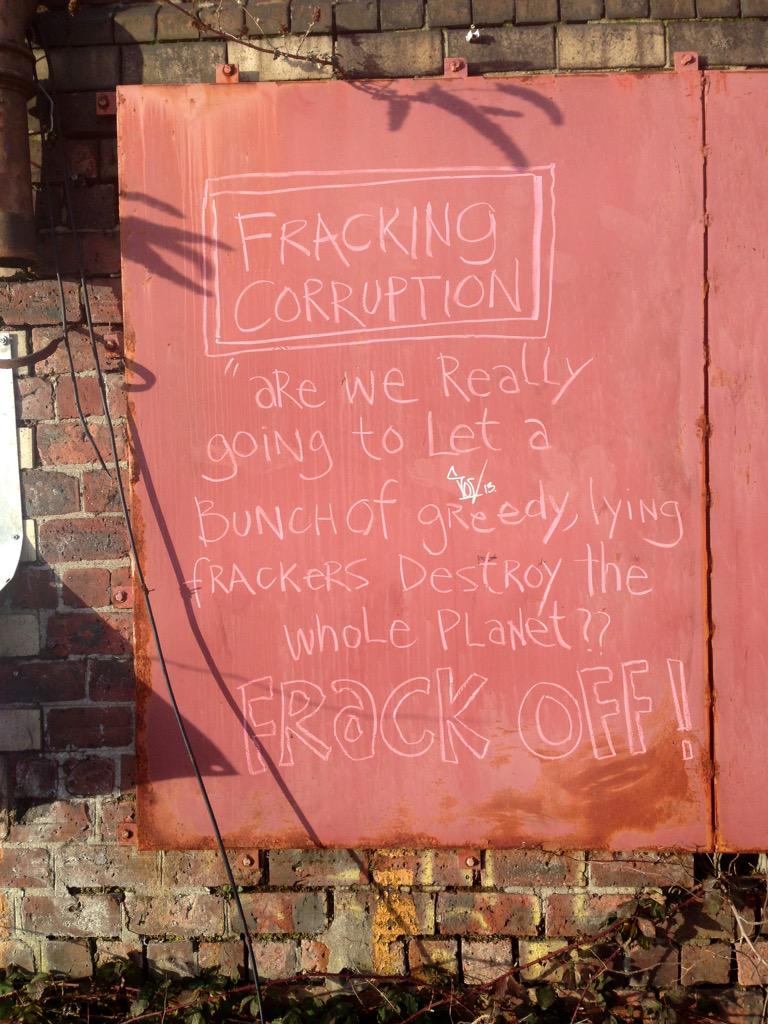 FRACKING
CORRUPTION
"aRe we ReaLLy
going to Let a
BUNCH OF gReedy, lying
fRACKERS DesTROY the
wHoLe PLaNet??
FRaCK OFF!